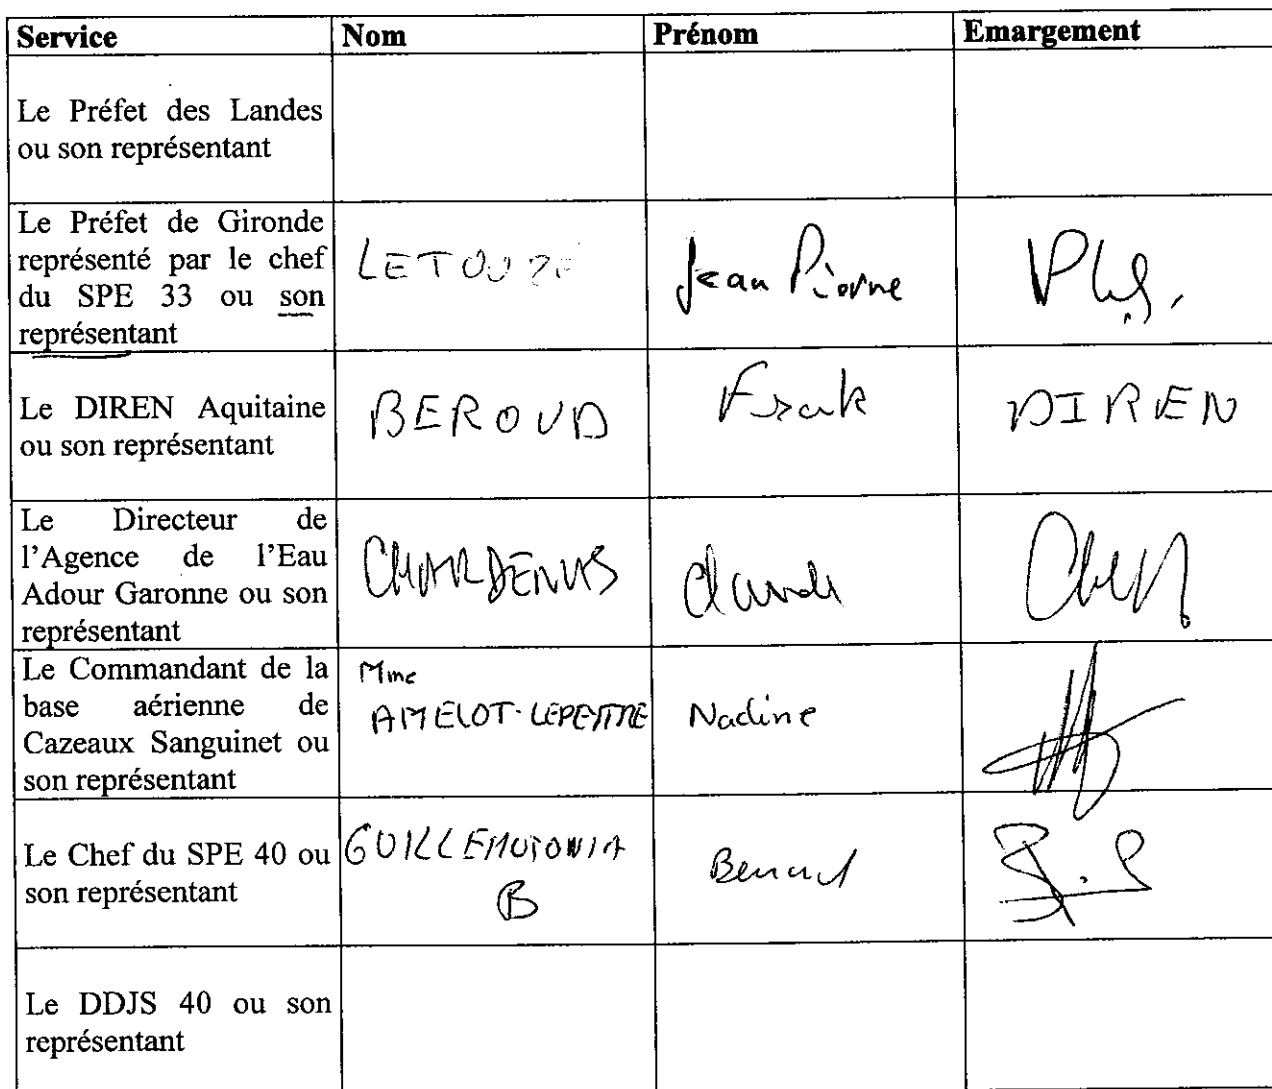 Service Nom Prénom Emargement
Le Préfet des Landes
ou son représentant
Le Préfet de Gironde
représenté par le chef
du SPE 33 ou son
représentant
LETOUZE Jean Pierre
Le DIREN Aquitaine
ou son représentant
BEROUD Frank DIREN
Le Directeur de
l'Agence de l'Eau
Adour Garonne ou son
représentant
Claude
Le Commandant de la
base aérienne de
Cazeaux Sanguinet ou
son représentant
Mme
AMELOT-LEPEITRE Nadine
Le Chef du SPE 40 ou
son représentant
B
Bernard
Le DDJS 40 ou son
représentant